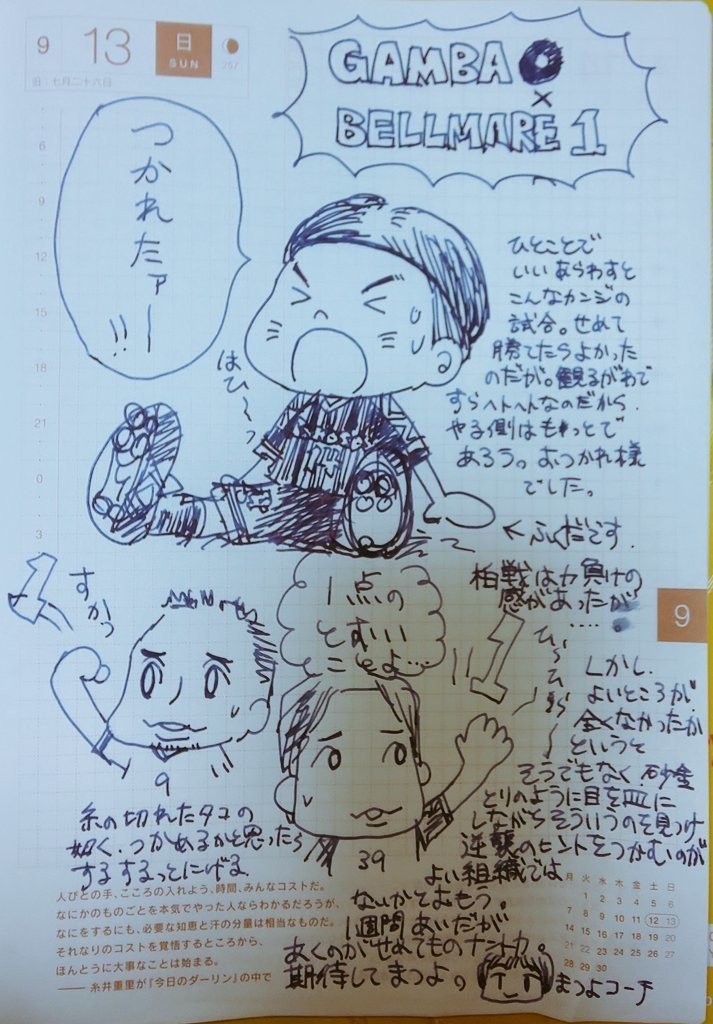 9
13
日
SUN
257
旧：七月二十六日
GAMBA 0
×
BELLMARE 1
つかれたァー!!
はひ〜っ
ひとことで
いいあらわすと
こんなカンジの
試合。せめて
勝てたらよかった
のだが。観るがわで
すらヘトヘトなのだから
やる側はもっとで
あろう。おつかれ様
でした。
←ふくだです。
6
9
12
15
18
21
0
3
9
柏戦は力負けの
感があったが
……。
しかし、
よいところが
全くなかったか
というと
そうでもなく、砂金
とりのように目を皿に
しながらそういうのを見つけ
逆襲のヒントをつかむのが
よい組織では
ないかとおもう。
1週間あいだが
あくのがせめてものナントカ。
期待してまつよ。
まつよコーチ
1
すかっ
9
1点の
とおい
ことよ…
1
ひらひら〜
39
糸の切れたタコの
如く、つかめるかと思ったら
するするっとにげる
人びとの手、こころの入れよう、時間、みんなコストだ。
なにかのものごとを本気でやった人ならわかるだろうが、
なにをするにも、必要な知恵と汗の分量は相当なものだ。
それなりのコストを覚悟するところから、
ほんとうに大事なことは始まる。
―― 糸井重里が『今日のダーリン』の中で
月 火 水 木 金 土 日
1 2 3 4 5 6
7 8 9 10 11 12 13
14 15 16 17 18 19 20
21 22 23 24 25 26 27
28 29 30